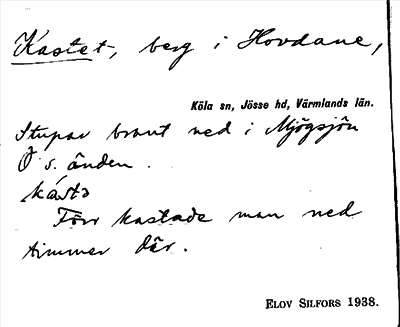 Kastet, berg i Hovdane,
Köla sn, Jösse hd, Värmlands län.
Stupar brant ned i Mjögsjön
Ö s. änden.
kástə
Förr kastade man ned
timmer där.
ELOV SILFORS 1938.